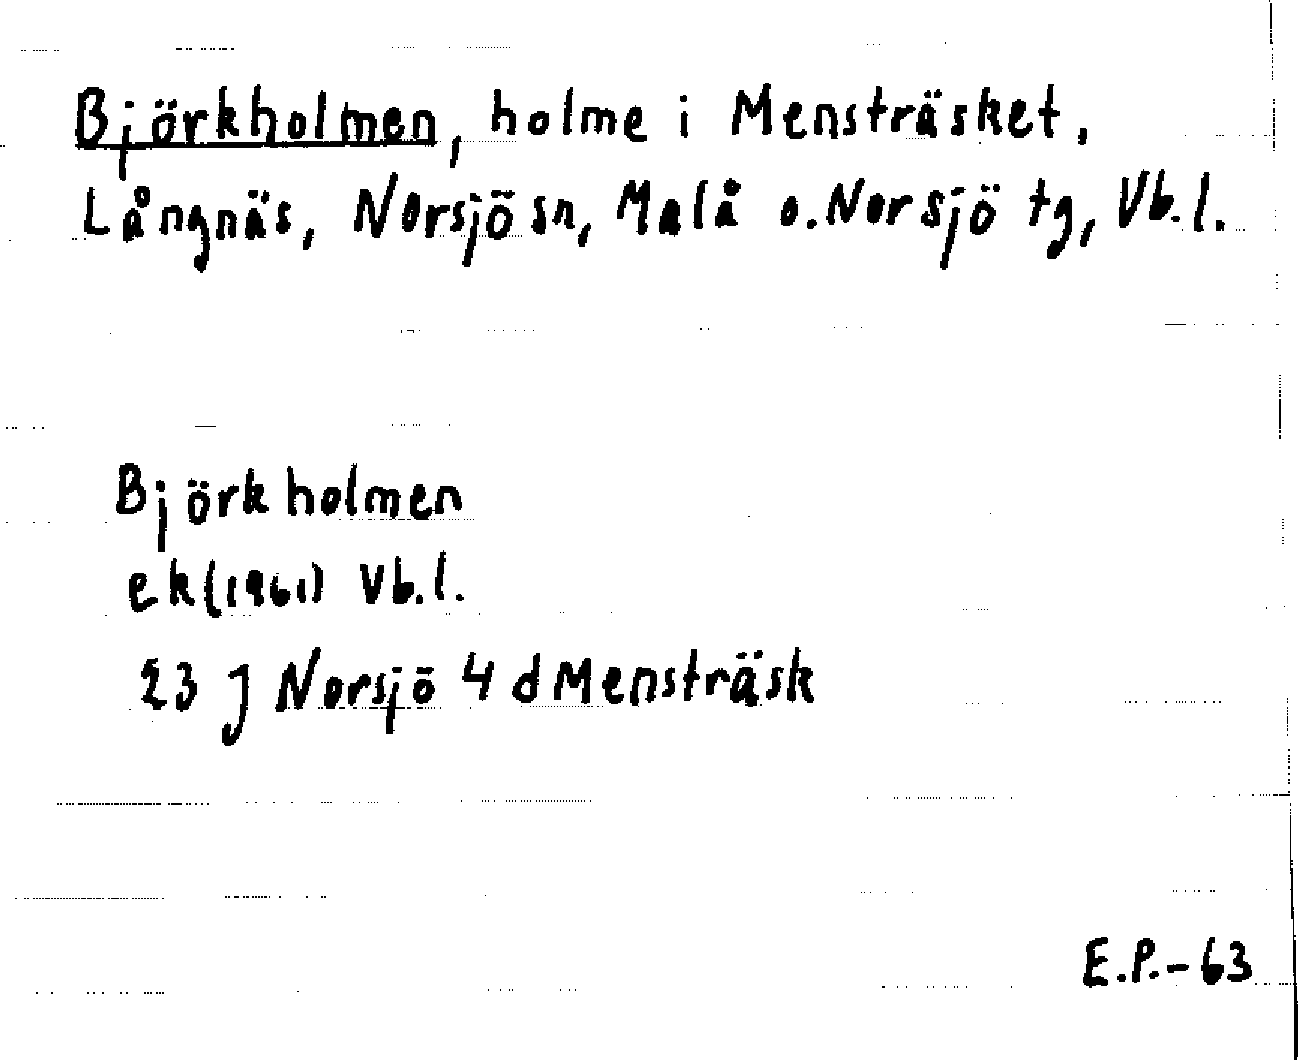 Björkholmen, holme i Mensträsket,
Långnäs, Norsjö sn, Malå o. Norsjö tg, Vb. l.
Björkholmen
ek (1961) Vb. l.
23 J Norsjö 4 d Mensträsk
E.P.-63